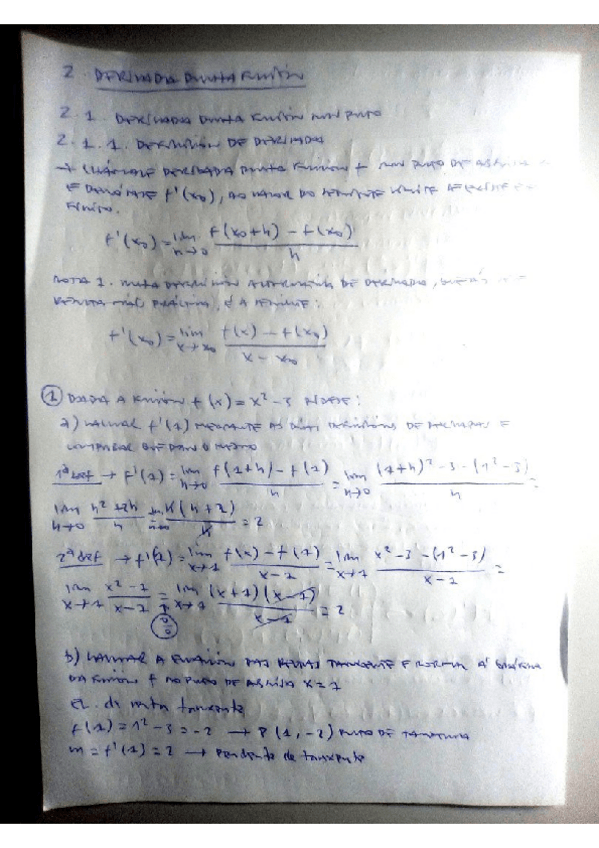 2. DERIVADA DUNHA FUNCIÓN
2.1. DERIVADA DUNHA FUNCIÓN NUN PUNTO
2.1.1. DEFINICIÓN DE DERIVADA
→ CHÁMASE DERIVADA DUNHA FUNCIÓN f NUN PUNTO DE ABSCISA
E DENÓTASE f'(x₀), AO VALOR DO SEGUINTE LÍMITE SE EXISTE E É
FINITO.
f'(x₀) = lim h→0 (f(x₀+h) - f(x₀)) / h
NOTA 1. UNHA DEFINICIÓN ALTERNATIVA DE DERIVADA, QUE
RESULTA MÁIS PRÁCTICA, É A SEGUINTE:
f'(x₀) = lim x→x₀ (f(x) - f(x₀)) / (x - x₀)
① DADA A FUNCIÓN f(x) = x² - 3 PÍDESE:
a) CALCULAR f'(1) MEDIANTE AS DÚAS DEFINICIÓNS DE DERIVADAS E
COMPROBAR QUE DAN O MESMO
1ª def → f'(1) = lim h→0 (f(1+h) - f(1)) / h = lim h→0 ((1+h)² - 3 - (1² - 3)) / h =
lim h→0 (h² + 2h) / h = lim h→0 h(h+2) / h = 2
2ª def → f'(1) = lim x→1 (f(x) - f(1)) / (x - 1) = lim x→1 (x² - 3 - (1² - 3)) / (x - 1) =
lim x→1 (x² - 1) / (x - 1) = lim x→1 (x+1)(x-1) / (x-1) = 2
0/0
b) CALCULAR A ECUACIÓN DAS RECTAS TANXENTE E NORMAL Á GRÁFICA
DA FUNCIÓN f NO PUNTO DE ABSCISA x = 1
Ec. da recta tanxente
f(1) = 1² - 3 = -2 → P(1, -2) PUNTO DE TANXENCIA
m = f'(1) = 2 → Pendente da tanxente